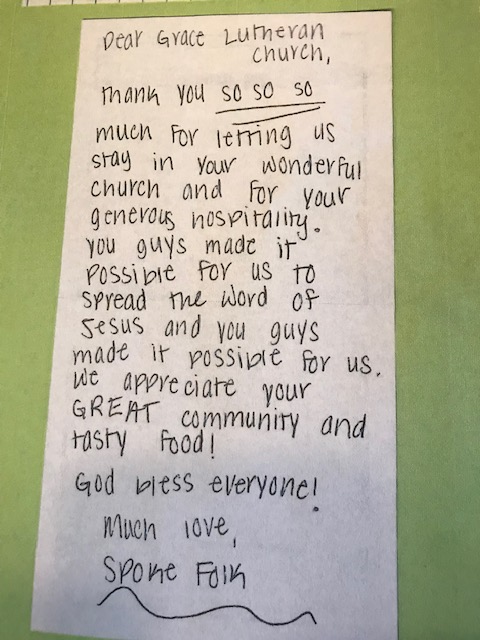 Dear Grace Lutheran
Church,
Thank you so so so
much for letting us
stay in your wonderful
church and for your
generous hospitality.
You guys made it
possible for us to
spread the word of
Jesus and you guys
made it possible for us.
We appreciate your
GREAT community and
tasty food!
God bless everyone!
Much love,
Spoke Folk